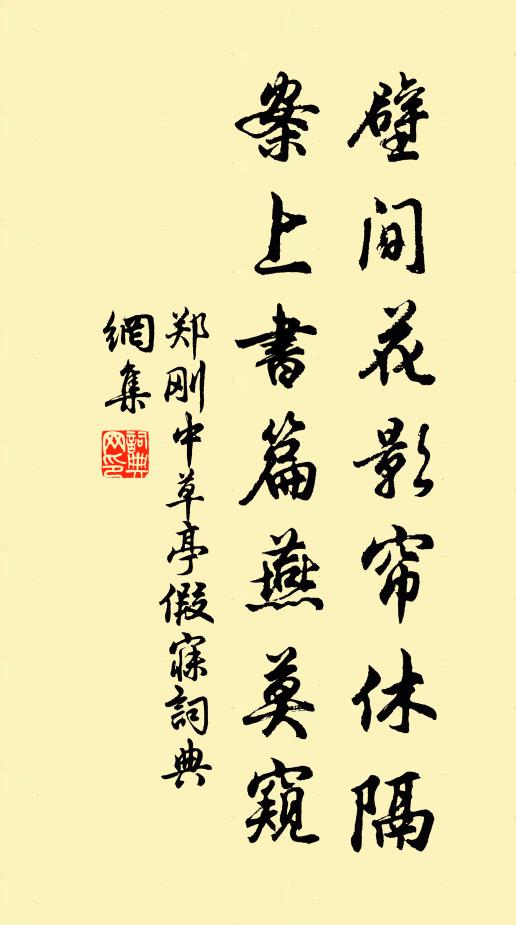 壁间花影帘休隔
案上書篇燕莫窺
郑刚中草亭假寐詞典
網集
詞典
网印